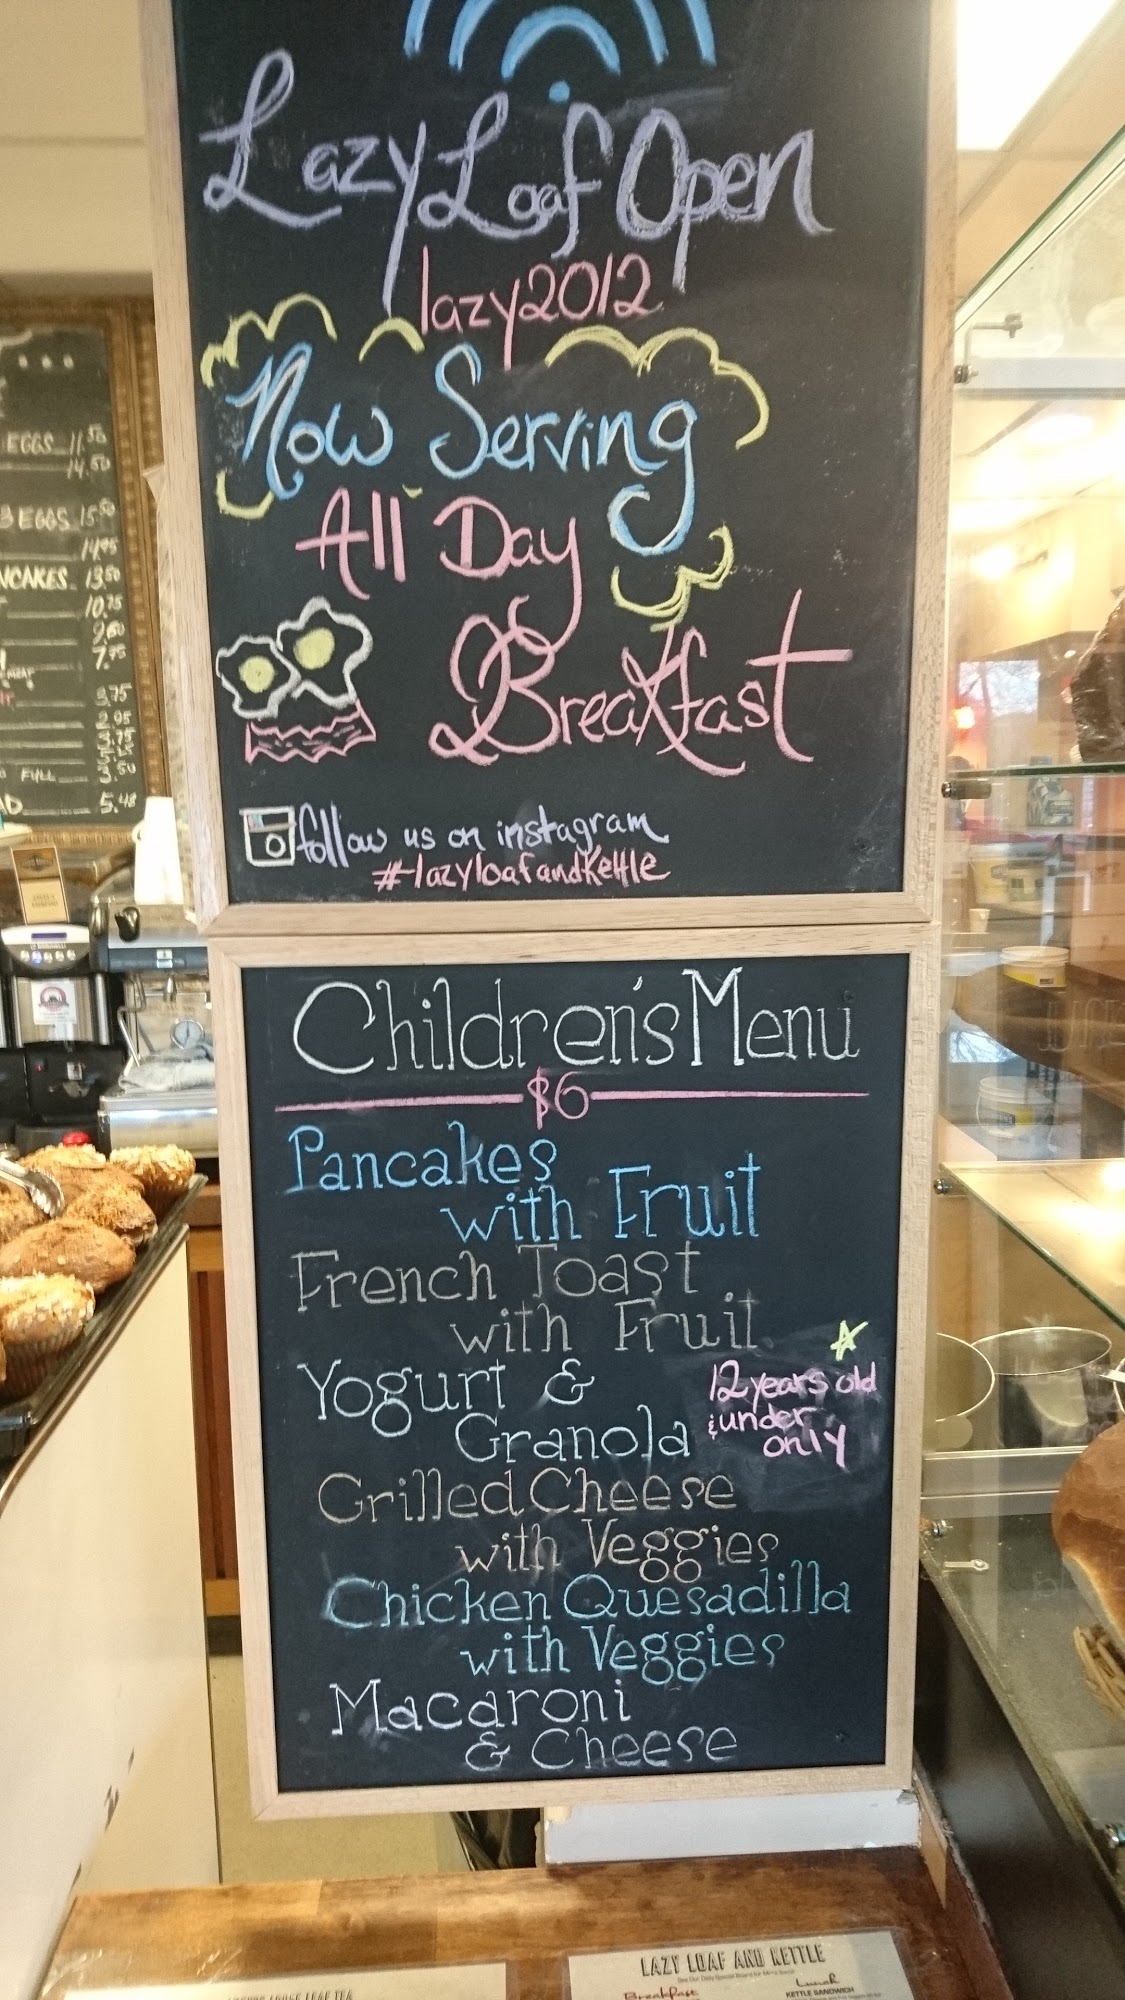 Lazy Loaf Open
lazy2012
Now Serving
All Day
Breakfast
follow us on instagram
#lazyloafandkettle
EGGS 11.50
14.50
3 EGGS 15.50
14.95
NCAKES 13.50
10.75
7.95
3.75
2.95
3.75
FULL 3.50
5.48
Children's Menu
$6
Pancakes
with Fruit
French Toast
with Fruit
Yogurt &
Granola
12 years old
& under
only
Grilled Cheese
with Veggies
Chicken Quesadilla
with Veggies
Macaroni
& Cheese
LAZY LOAF AND KETTLE
Breakfast
Lunch
KETTLE SANDWICH
LOOSE LEAF TEA